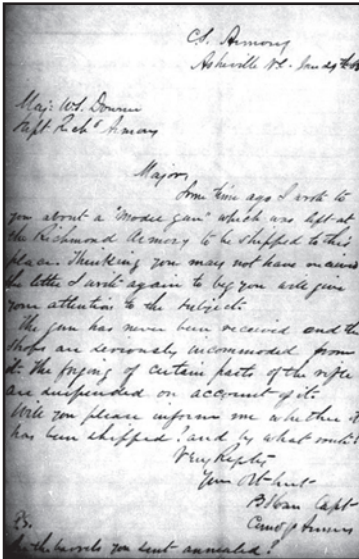 C.S. Armory
Asheville N.C.
Maj: W.S. Downer
Supt. Rich^d Armory
Major,
Some time ago I wrote to
you about a "Model gun" which was left at
the Richmond Armory to be shipped to this
place. Thinking you may not have received
the letter I write again to beg you will give
your attention to the subject.
The gun has never been received and the
shops are seriously incommoded from
it. The forging of certain parts of the rifle
are suspended on account of it.
Will you please inform me whether it
has been shipped? and by what route?
Very Resptly
Your Obt Servt
B Sloan Capt
Comdg Armory
P.S.
the barrels you sent annealed?